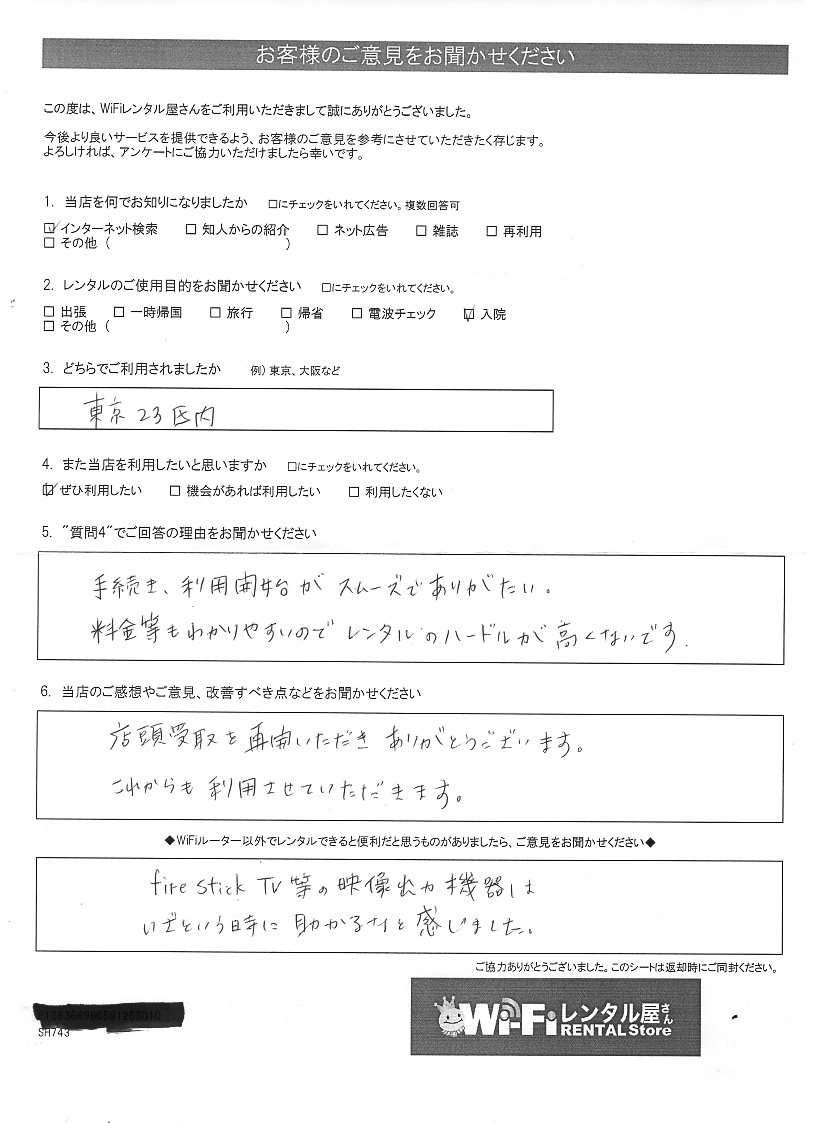 お客様のご意見をお聞かせください
この度は、WiFiレンタル屋さんをご利用いただきまして誠にありがとうございました。
今後より良いサービスを提供できるよう、お客様のご意見を参考にさせていただきたく存じます。
よろしければ、アンケートにご協力いただけましたら幸いです。
1. 当店を何でお知りになりましたか □にチェックをいれてください。複数回答可
☑インターネット検索 □ 知人からの紹介 □ ネット広告 □ 雑誌 □ 再利用
□ その他 ( )
2. レンタルのご使用目的をお聞かせください □にチェックをいれてください。
□ 出張 □ 一時帰国 □ 旅行 □ 帰省 □ 電波チェック ☑ 入院
□ その他 ( )
3. どちらでご利用されましたか 例) 東京、大阪など
東京23区内
4. また当店を利用したいと思いますか □にチェックをいれてください。
☑ぜひ利用したい □ 機会があれば利用したい □ 利用したくない
5. "質問4"でご回答の理由をお聞かせください
手続き、利用開始がスムーズでありがたい。
料金等もわかりやすいのでレンタルのハードルが高くないです.
6. 当店のご感想やご意見、改善すべき点などをお聞かせください
店頭受取を再開いただきありがとうございます。
これからも利用させていただきます。
◆WiFiルーター以外でレンタルできると便利だと思うものがありましたら、ご意見をお聞かせください◆
fire stick TV等の映像出力機器は
いざという時に助かるナと感じました。
ご協力ありがとうございました。このシートは返却時にご同封ください。
SH743
Wi-Fiレンタル屋さん
RENTAL Store